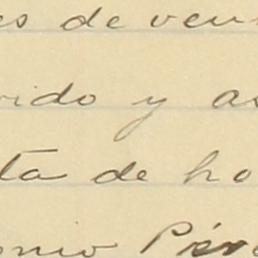 es de ven
vido y as
ta de ho
onio Pére